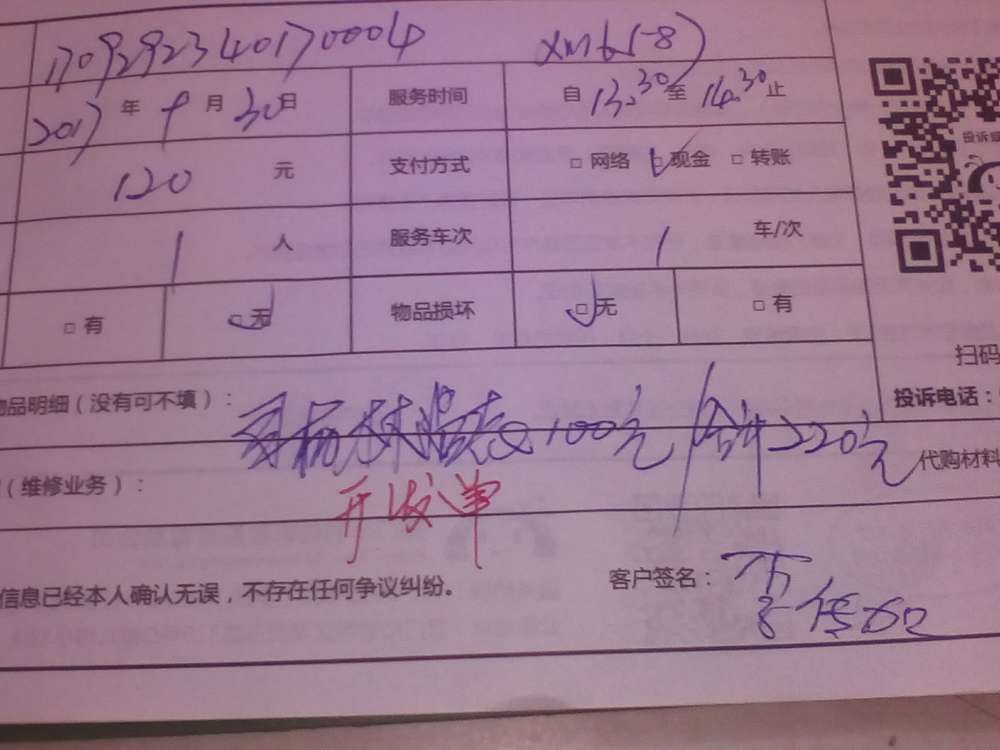 1709292340170004 XMb(-8)
2017年9月30日 服务时间 自13.30至14.30止
120元 支付方式 □网络 □现金 □转账
1人 服务车次 1车/次
□有 □无 物品损坏 □无 □有
品明细（没有可不填）：
100元 合计220元 代购材料
（维修业务）：
开 单
信息已经本人确认无误，不存在任何争议纠纷。 客户签名：
扫码
投诉电话：